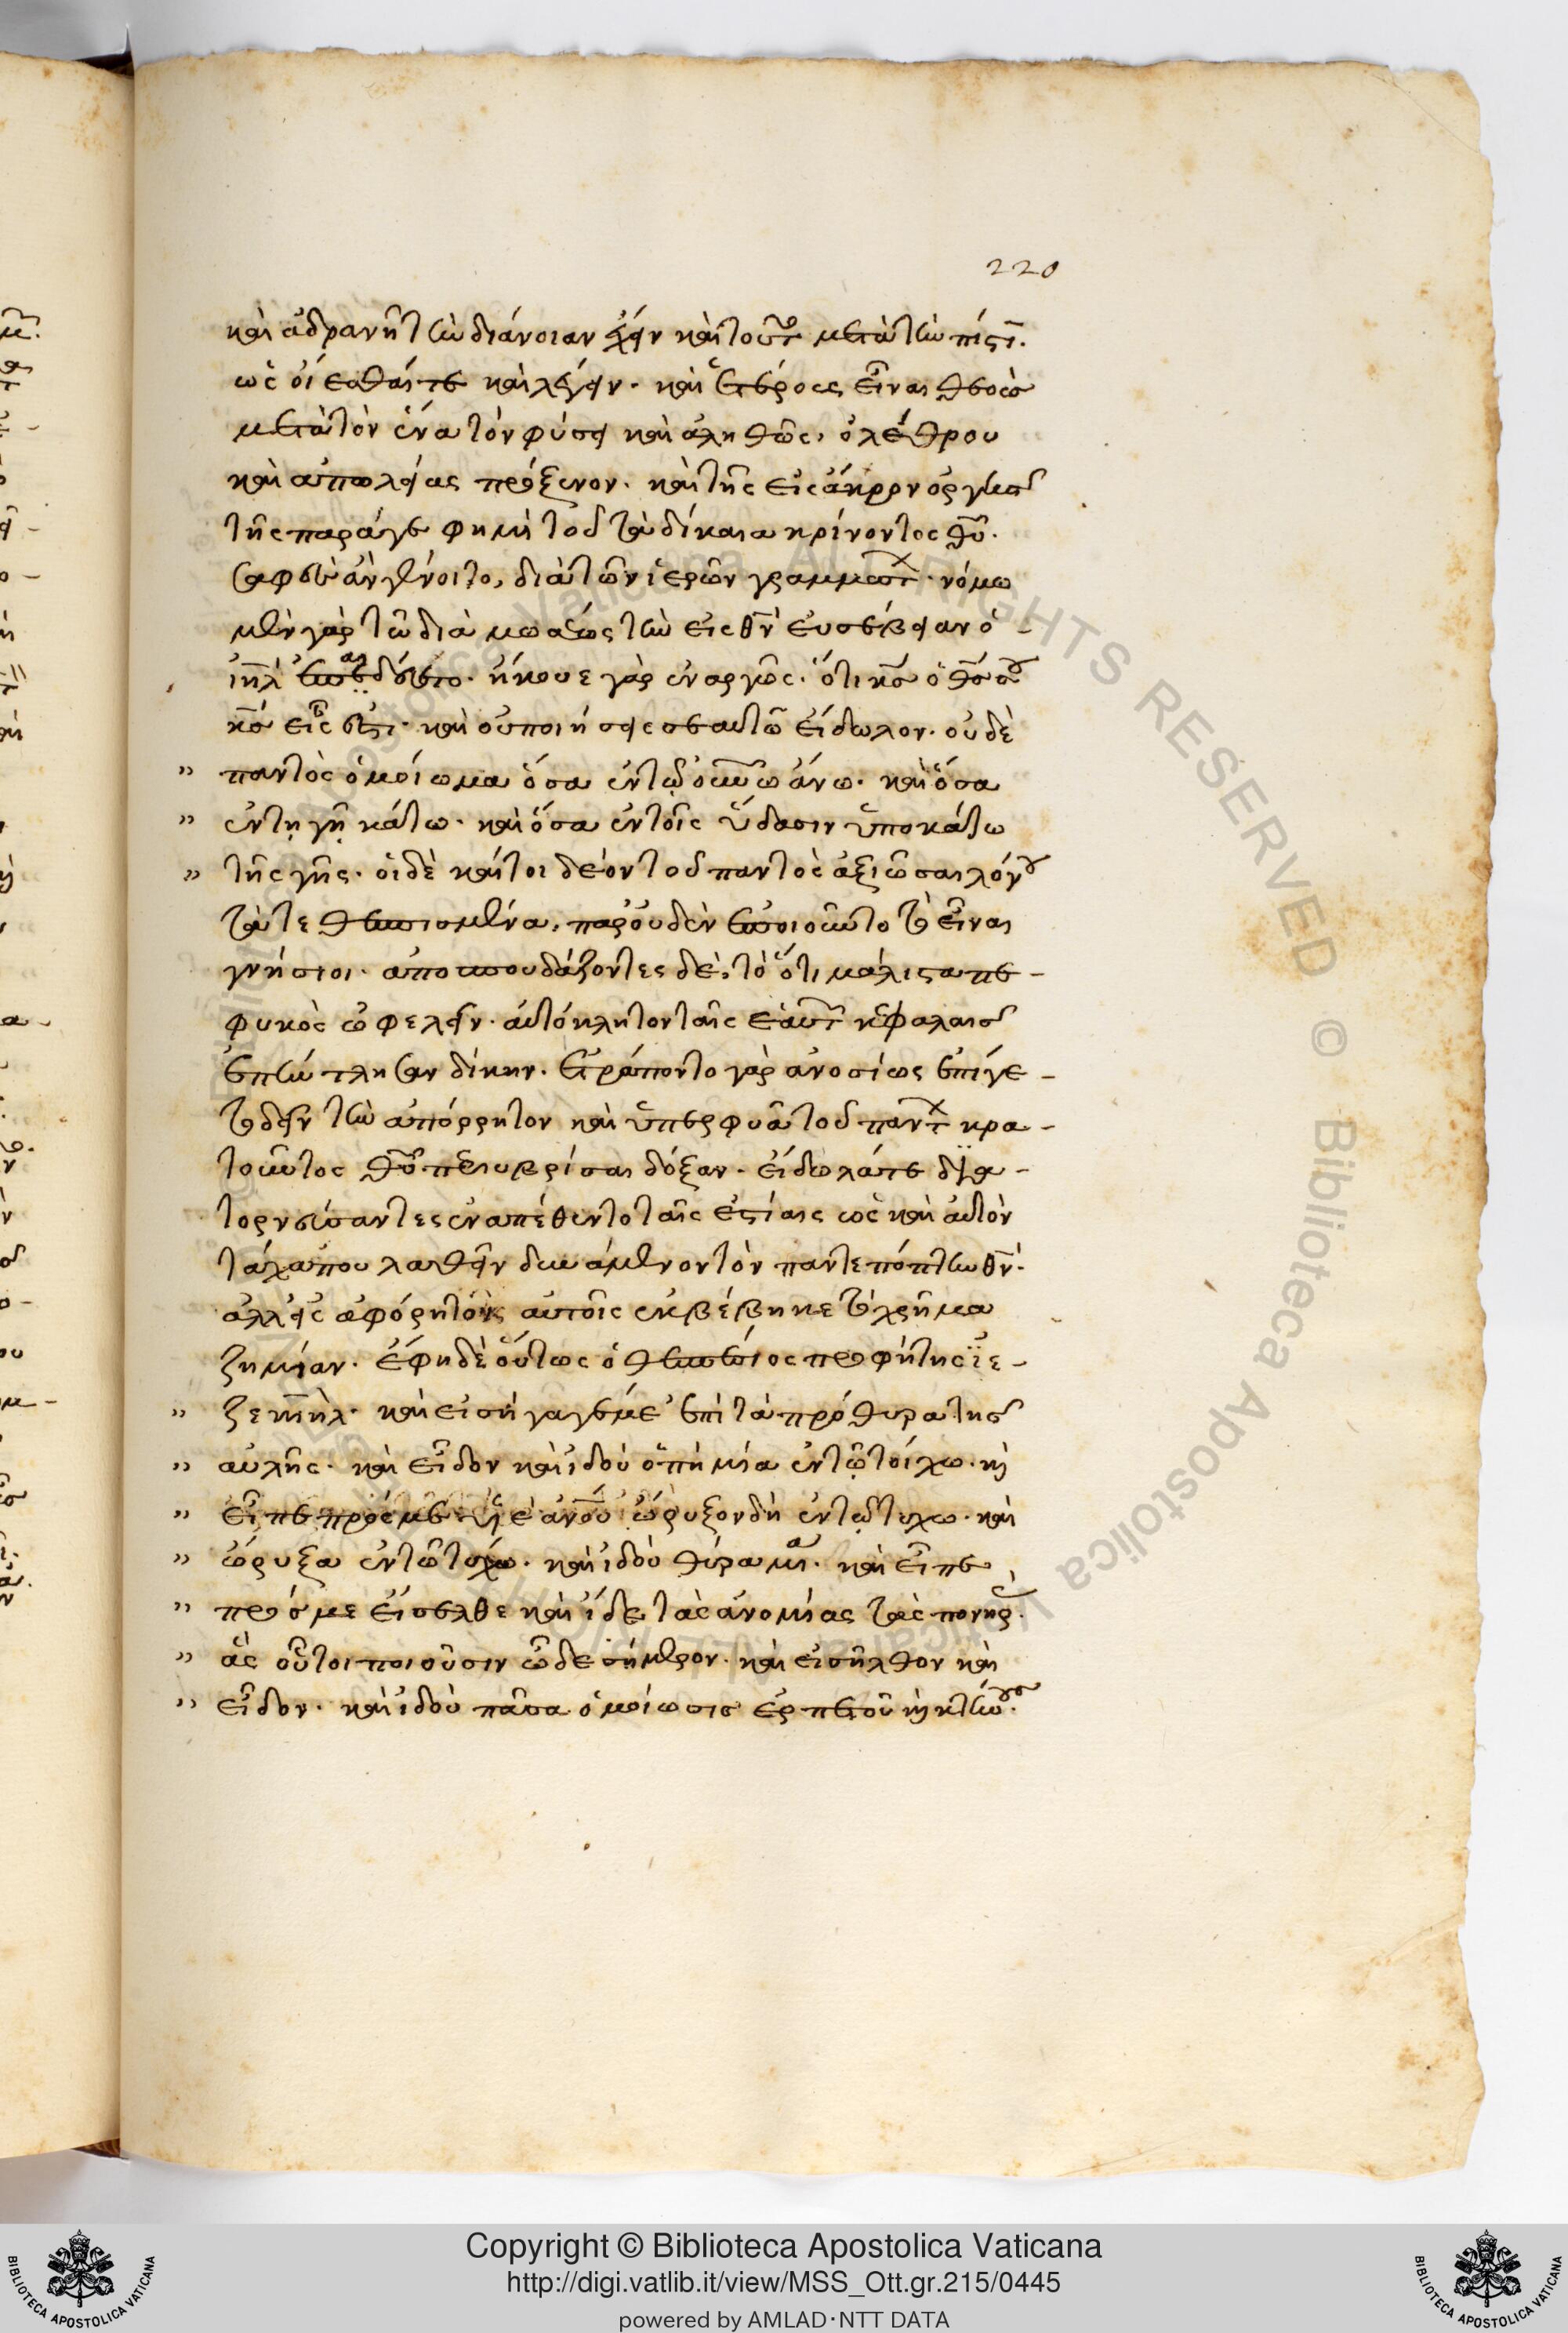 220
καὶ ἀδρανῆ τὴν διάνοιαν ἔχειν καὶ τοῦτο μετὰ τὴν πίστιν.
ὡς οἴεσθαί τε καὶ λέγειν. καὶ ἑτέρους εἶναι θεοὺς
μετὰ τὸν ἕνα τὸν φύσει καὶ ἀληθῶς, ὀλέθρου
καὶ ἀπωλείας πρόξενον. καὶ τῆς εἰς ἄκρον ὀργῆς
τῆς παρά γέ φημι τοῦ τὰ δίκαια κρίνοντος θῦ.
σαφὲς ἂν γένοιτο, διὰ τῶν ἱερῶν γραμμάτων. νόμω
μὲν γὰρ τῶ διὰ μωσέως τὴν εἰς θν̄ εὐσέβειαν ὁ -
ἰηλ̄ ἐπαιδεύετο. ἤκουε γὰρ ἐναργῶς. ὅτι κς̄ ὁ θς̄ σου
κς̄ εἷς ἐστι. καὶ οὐ ποιήσεις σεαυτῶ εἴδωλον. οὐδὲ
" παντὸς ὁμοίωμα ὅσα ἐν τῷ οὐνῶ ἄνω. καὶ ὅσα
" ἐν τῇ γῇ κάτω. καὶ ὅσα ἐν τοῖς ὕδασιν ὑποκάτω
" τῆς γῆς. οἱ δὲ καίτοι δέον τοῦ παντὸς ἀξιῶσαι λόγου
τά τε θεσπισμένα, παρ' οὐδὲν ἐποιοῦντο τὸ εἶναι
γνήσιοι. ἀποσπουδάζοντες δὲ, τὸ ὅτι μάλιστα πε -
φυκὸς ὠφελεῖν. αὐτόκλητον ταῖς ἑαυτῶν κεφαλαῖς
ἐπήντλησαν δίκην. ἐτράποντο γὰρ ἀνοσίως ἐπί γε -
τὸ δεῖν τὴν ἀπόρρητον καὶ ὑπερφυᾶ τοῦ πάντων κρα -
τοῦντος θῦ περιυβρίσαι δόξαν. εἴδωλά τε δὴ δια -
τορνεύσαντες ἐναπέθεντο ταῖς ἑστίαις ὡς καὶ αὐτὸν
τάχα που λαθεῖν δυνάμενον τὸν παντεπόπτην θν̄.
ἀλλ' εἰς ἀφόρητον αὐτοῖς ἐκβέβηκε τὸ χρῆμα
ζημίαν. ἔφη δὲ οὕτως ὁ θεσπέσιος προφήτης ϊε -
" ζεκιήλ. καὶ εἰσήγαγέ με ἐπὶ τὰ πρόθυρα τῆς
" αὐλῆς. καὶ εἶδον καὶ ἰδοὺ ὀπὴ μία ἐν τῶ τοίχω. καὶ
" εἶπε πρός με υἱὲ ἀνοῦ ὤρυξον δὴ ἐν τῷ τυχω. καὶ
" ὤρυξα ἐν τῶ τυχω. καὶ ἰδοὺ θύρα μία. καὶ εἶπε
" πρός με εἴσελθε καὶ ἴδε τὰς ἀνομίας τὰς πονηρὰς.
" ἃς οὗτοι ποιοῦσιν ὧδε σήμερον. καὶ εἰσῆλθον καὶ
" εἶδον. καὶ ἰδοὺ πᾶσα ὁμοίωσις ἑρπετοῦ καὶ κτήνους.
Copyright © Biblioteca Apostolica Vaticana
http://digi.vatlib.it/view/MSS_Ott.gr.215/0445
powered by AMLAD·NTT DATA
BIBLIOTECA APOSTOLICA VATICANA
BIBLIOTECA APOSTOLICA VATICANA